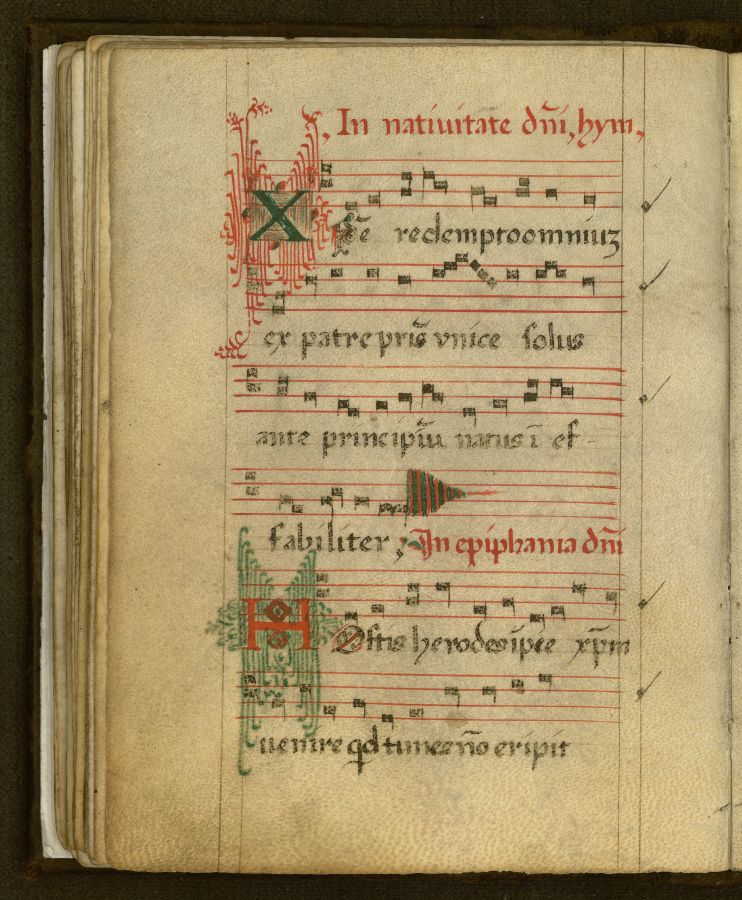 In natiuitate dñi, hym,
Xp̃e redemptoomniuʒ
ex patre pris̃ vnice solus
ante principiũ natus ĩ ef-
fabiliter, In epiphania dñi
HOstis herodes ĩpie xp̃m
uenire qd times ño eripit